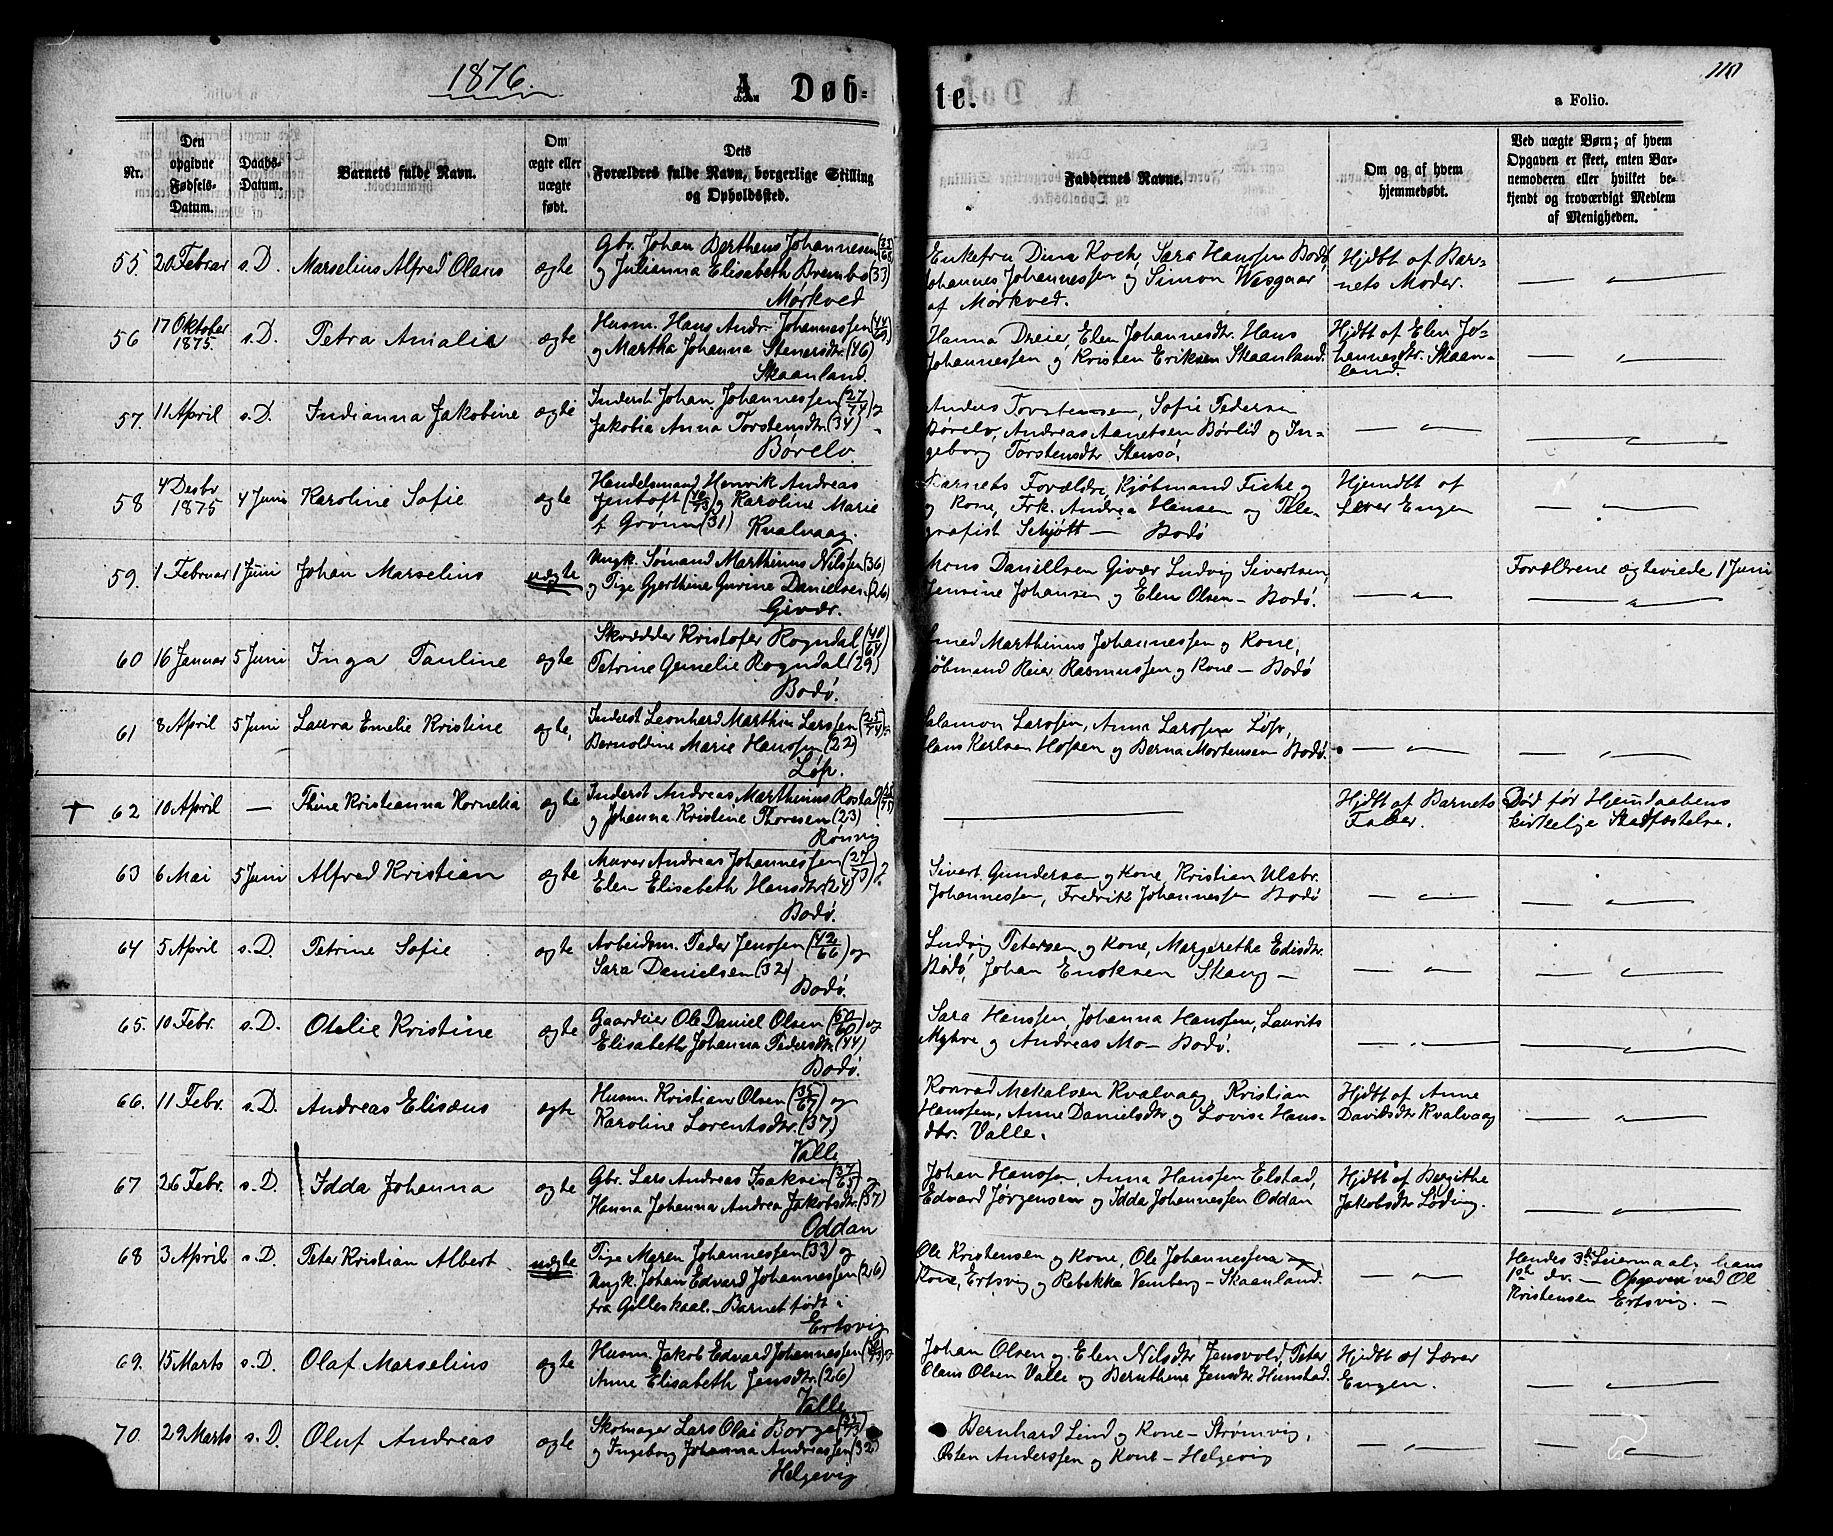 1876.
A. Døbte.
110
a Folio.
Nr.
Den opgivne Fødsels-Datum.
Daabs-Datum.
Barnets fulde Navn.
Om ægte eller uægte født.
Dets Forældres fulde Navn, borgerlige Stilling og Opholdssted.
Faddernes Navne.
Om og af hvem hjemmedøbt.
Ved uægte Børn; af hvem Opgaven er skeet, enten Barnemoderen eller hvilket bekjendt og troværdigt Medlem af Menigheden.
55. 20 Februar s.D. Marselius Alfred Olaus ægte
Gbr. Johan Berthens Johannesen
og Julianna Elisabeth Brembo (33)
Mørkved
Enkefru Dina Koch, Sara Hanssen Bodø,
Johannes Johannessen og Simon Wesgaar
af Mørkved.
Hjdbt af Bar-
nets Moder.
56 17 Oktober 1875. s.D. Petra Amalia ægte
Husm. Hans Andr. Johannessen (44/69)
og Martha Johanna Stenersdtr. (46)
Skaanland.
Hanna Dreier, Elen Johannesdtr. Hans
Johannessen og Kristen Eriksen Skaanland.
Hjdbt af Elen Jo-
hannesdtr. Skaan-
land.
57. 11 April s.D. Indianna Jakobine ægte
Inderst Johan Johannessen (27/74) og
Jakobia Anna Torstensdtr. (34)
Børelv.
Anders Torstensen, Sofie Pedersen
Børelv, Andreas Aanetsen Børlid og In-
geborg Torstensdtr Stensø.
58 4 Desbr 1875 4 Juni Karoline Sofie ægte
Handelsmand Henrik Andreas
Jentoft (40/73) og Karoline Marie
f. Grønn (31) Kvalvaag.
Barnets Forældre, Kjøbmand Ficke og
og Kone, Frk. Andrea Hansen og Tele-
grafist Schjøtt — Bodø
Hjemdbt af
Lærer Engen
59. 1 Februar 1 Juni Johan Marselius uægte
Ungk. Sømand Marthinus Nilsen (36)
og Pige Gjerthine Gurine Danielsen (26)
Givær.
Mons Daniellsen Givær Ludvig Sivertsen,
Jensine Johansen og Elen Olsen — Bodø.
Forældrene ægteviede 1 Juni
60 16 Januar 5 Juni Inga Pauline ægte
Skrædder Kristofer Rogndal (40/64)
Petrine Gemelie Rogndal (29)
Bodø.
Smed Marthinus Johannessen og Kone,
Kjøbmand Reier Rasmussen og Kone — Bodø
61 8 April 5 Juni Laura Emelie Kristine ægte,
Inderst Leonhard Marthin Larssen (25/74) og
Bernoldine Marie Hanssen (22)
Løp.
Salamon Larssen, Anna Larssen Løp,
Hans Karlsen Hofsen og Berna Mortensen Bodø.
† 62 10 April — Thine Kristianna Kornelia ægte
Inderst Andreas Marthinus Rostad
og Johanna Kristine Thoresen (23)
Rønvig
Hjdbt af Barnets
Fader.
Død før Hjemdaabens
kirkelige Stadfæstelse.
63 6 Mai 5 Juni Alfred Kristian ægte
Murer Andreas Johannessen (27/73) og
Elen Elisabeth Hansdtr. (24)
Bodø.
Sivert Gundersen og Kone, Kristian Ulsbr.
Johannessen, Fredrik Johannessen Bodø
64 5 April s.D. Petrine Sofie ægte
Arbeidsm. Peder Jenssen (42/66) og
Sara Danielsen (32)
Bodø.
Ludvig Petersen og Kone, Margeretha Edisdtr.
Bodø, Johan Enoksen Skaug —
65. 10 Febr. s.D. Otelie Kristine ægte
Gaardeier Ole Daniel Olsen (50/60) og
Elisabeth Johanna Pedersdtr. (44)
Bodø.
Sara Hanssen, Johanna Hanssen, Laurits
Myhre og Andreas Mo — Bodø.
66. 11 Febr. s.D. Andreas Elisæus ægte
Husm. Kristian Olsen (35/67) og
Karoline Lorentsdtr. (37)
Valle
Konrad Mekalsen Kvalvaag, Kristian
Hanssen, Anne Danielsdtr og Lovise Hans-
dtr. Valle.
Hjdbt af Anne
Davidsdtr Kvalvaag
67 26 Febr. s.D. Idda Johanna ægte
Gbr. Lars Andreas Isaksen (37/65) og
Hanna Johanna Andrea Jakobsdtr. (37)
Oddan
Johan Hanssen, Anna Hanssen Elstad,
Edvard Jørgensen og Idda Johannessen Oddan
Hjdbt af Bergithe
Jakobsdtr Løding.
68 3 April s.D. Peter Kristian Albert uægte
Pige Maren Johannessen (33) og
Ungk. Johan Edvard Johannessen (26)
fra Gilleskaal. — Barnet født i
Ertsvig
Ole Kristensen og Kone, Ole Johannessen og
Kone, Ertsvig og Rebekka Vemberg — Skaanland.
Hendes 3die Leiermaal, hans
1ste do. — Opgaven ved Ol
Kristensen Ertsvig. —
69. 15 Marts s.D. Olaf Marselius ægte
Husm. Jakob Edvard Johannessen
Anne Elisabeth Jensdtr. (26)
Valle
Johan Olsen og Elen Nilsdtr Jensvold, Peter
Olaus Olsen Valle og Bernthine Jensdtr. Hunstad.
Hjdbt af Lærer
Engen.
70. 29 Marts s.D. Oluf Andreas ægte
Skomager Lars Olai Borge
og Ingeborg Johanna Andreassen (32)
Helgevig
Bernhard Lind og Kone — Strømvig,
Østen Anderssen og Kone — Helgevig